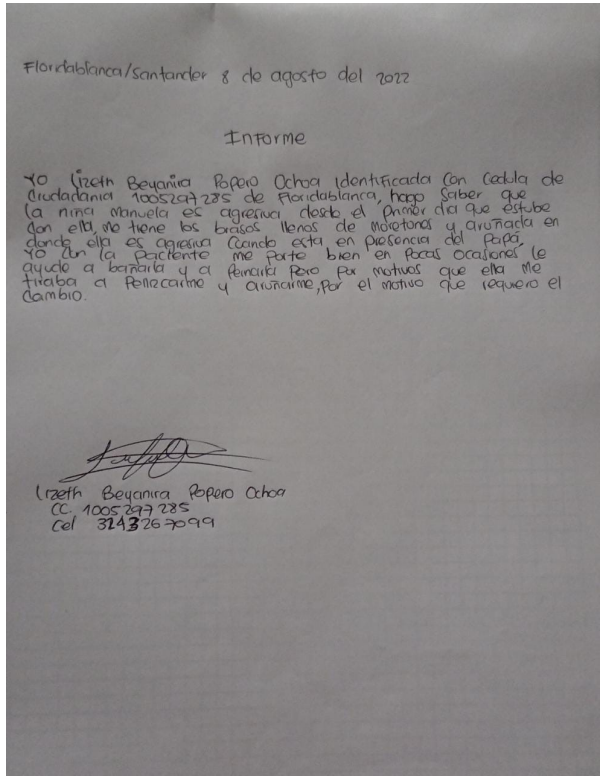 Floridablanca/Santander 8 de agosto del 2022
Informe
Yo Lizeth Beyanira Popero Ochoa identificada con cedula de
Ciudadania 1005297285 de Floridablanca, hago saber que
la niña Manuela es agresiva desde el primer dia que estube
con ella, me tiene los brasos llenos de moretones y aruñada en
donde ella es agresiva cuando esta en presencia del Papá,
Yo con la paciente me porte bien en pocas ocasiones le
ayude a bañarla y a peinarla pero por motivos que ella me
tiraba a pellizcarme y aruñarme, por el motivo que requiero el
cambio.
Lizeth Beyanira Popero Ochoa
CC. 1005297285
Cel 3243267099